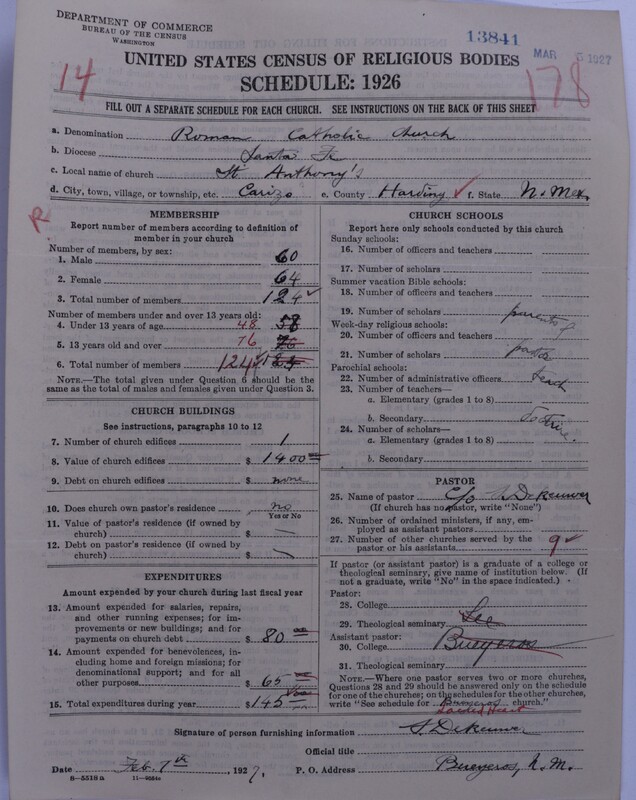 DEPARTMENT OF COMMERCE
BUREAU OF THE CENSUS
WASHINGTON
13841
MAR 5 1927
UNITED STATES CENSUS OF RELIGIOUS BODIES
SCHEDULE: 1926
14
178
FILL OUT A SEPARATE SCHEDULE FOR EACH CHURCH. SEE INSTRUCTIONS ON THE BACK OF THIS SHEET
a. Denomination Roman Catholic Church
b. Diocese Santa Fe
c. Local name of church St Anthony's
d. City, town, village, or township, etc. Carizo e. County Harding ✓ f. State N. Mex.
R
MEMBERSHIP
Report number of members according to definition of
member in your church
Number of members, by sex:
1. Male 60
2. Female 64
3. Total number of members 124 ✓
Number of members under and over 13 years old:
4. Under 13 years of age 48 58
5. 13 years old and over 76
6. Total number of members 124 ✓
NOTE.—The total given under Question 6 should be
the same as the total of males and females given under Question 3.
CHURCH BUILDINGS
See instructions, paragraphs 10 to 12
7. Number of church edifices 1
8. Value of church edifices $ 1400
9. Debt on church edifices $ none
10. Does church own pastor's residence no
Yes or No
11. Value of pastor's residence (if owned by
church) $ —
12. Debt on pastor's residence (if owned by
church) $ —
EXPENDITURES
Amount expended by your church during last fiscal year
13. Amount expended for salaries, repairs,
and other running expenses; for im-
provements or new buildings; and for
payments on church debt $ 80
14. Amount expended for benevolences,
including home and foreign missions; for
denominational support; and for all
other purposes $ 65
15. Total expenditures during year $ 145
CHURCH SCHOOLS
Report here only schools conducted by this church
Sunday schools:
16. Number of officers and teachers
17. Number of scholars
Summer vacation Bible schools:
18. Number of officers and teachers
19. Number of scholars parents
Week-day religious schools:
20. Number of officers and teachers
21. Number of scholars pastor
Parochial schools:
22. Number of administrative officers teach
23. Number of teachers—
a. Elementary (grades 1 to 8)
b. Secondary
24. Number of scholars—
a. Elementary (grades 1 to 8)
b. Secondary
PASTOR
25. Name of pastor Dekeuwer
(If church has no pastor, write "None")
26. Number of ordained ministers, if any, em-
ployed as assistant pastors
27. Number of other churches served by the
pastor or his assistants 9 ✓
If pastor (or assistant pastor) is a graduate of a college or
theological seminary, give name of institution below. (If
not a graduate, write "No" in the space indicated.)
Pastor:
28. College
29. Theological seminary See
Assistant pastor:
30. College Bueyeros
31. Theological seminary
NOTE.—Where one pastor serves two or more churches,
Questions 28 and 29 should be answered only on the schedule
for one of the churches; on the schedules for the other churches,
write "See schedule for Bueyeros church."
Sacred Heart
Signature of person furnishing information Dekeuwer
Official title
Date Feb. 7th, 1927. P. O. Address Bueyeros, N. M.
8—5518a